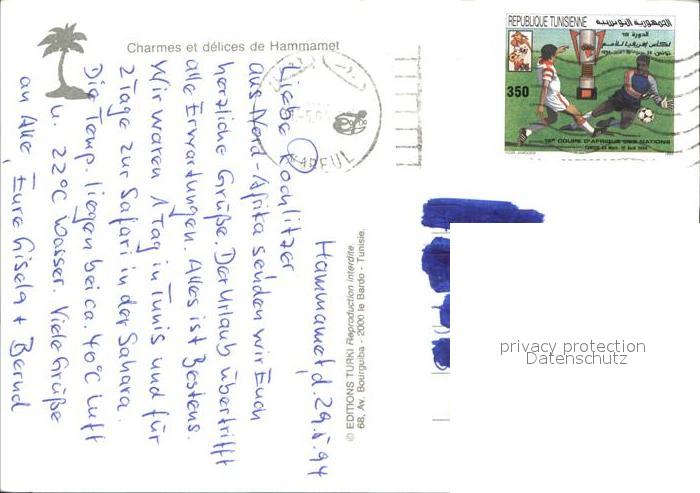 Charmes et délices de Hammamet
REPUBLIQUE TUNISIENNE الجمهورية التونسية
الدورة 19
لكأس إفريقيا للأمم
350
19e COUPE D'AFRIQUE DES NATIONS
Hammamet, d. 29.5.94
Liebe Rochlitzer
aus Nord-Afrika senden wir Euch
herzliche Grüße. Der Urlaub übertrifft
alle Erwartungen. Alles ist Bestens.
Wir waren 1 Tag in Tunis und für
2 Tage zur Safari in der Sahara.
Die Temp. liegen bei ca. 40°C Luft
u. 22°C Wasser. Viele Grüße
an Alle, Eure Gisela + Bernd
© EDITIONS TURKI Reproduction interdite.
68, Av. Bourguiba - 2000 le Bardo - Tunisie.
privacy protection
Datenschutz